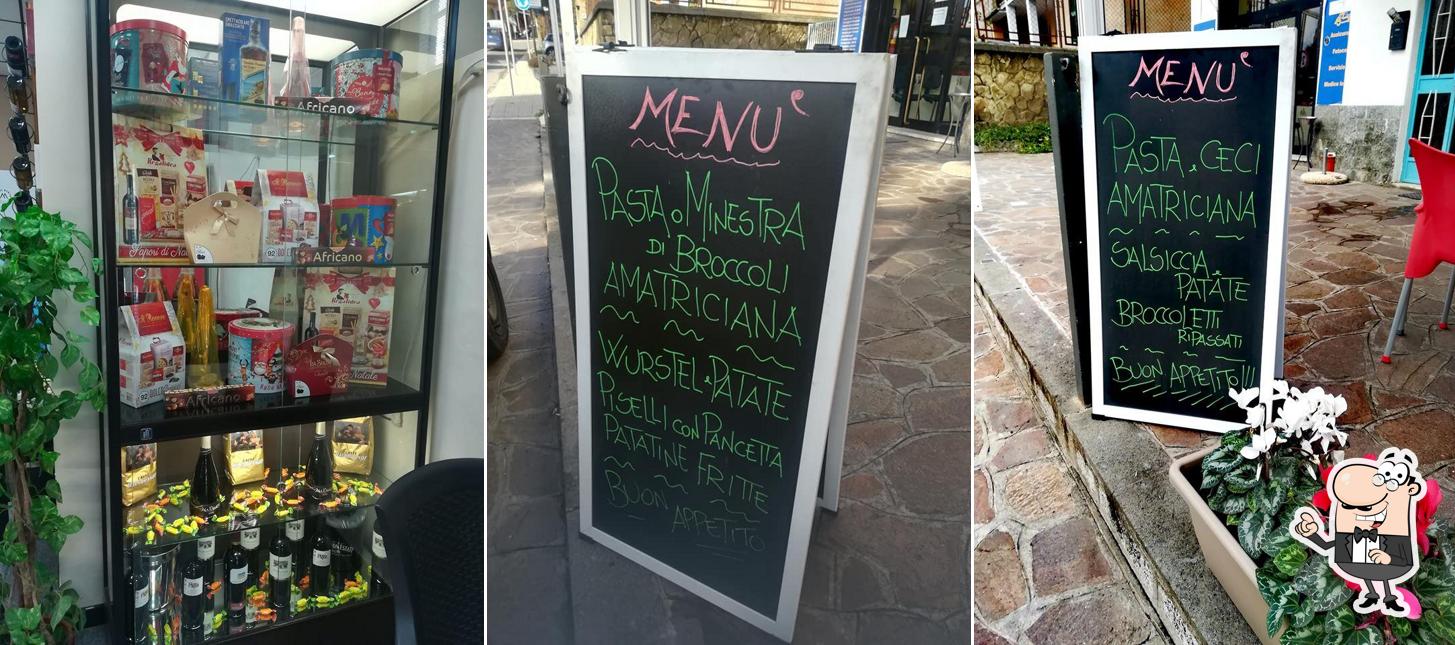 Africano
Sapori di Natale
92
Africano
92
Natale
Africano
MENU'
PASTA o MINESTRA
DI BROCCOLI
AMATRICIANA
WURSTEL e PATATE
PISELLI CON PANCETTA
PATATINE FRITTE
BUON
APPETITO
MENU'
PASTA e CECI
AMATRICIANA
SALSICCIA e
PATATE
BROCCOLETTI
RIPASSATI
BUON APPETITO!!!